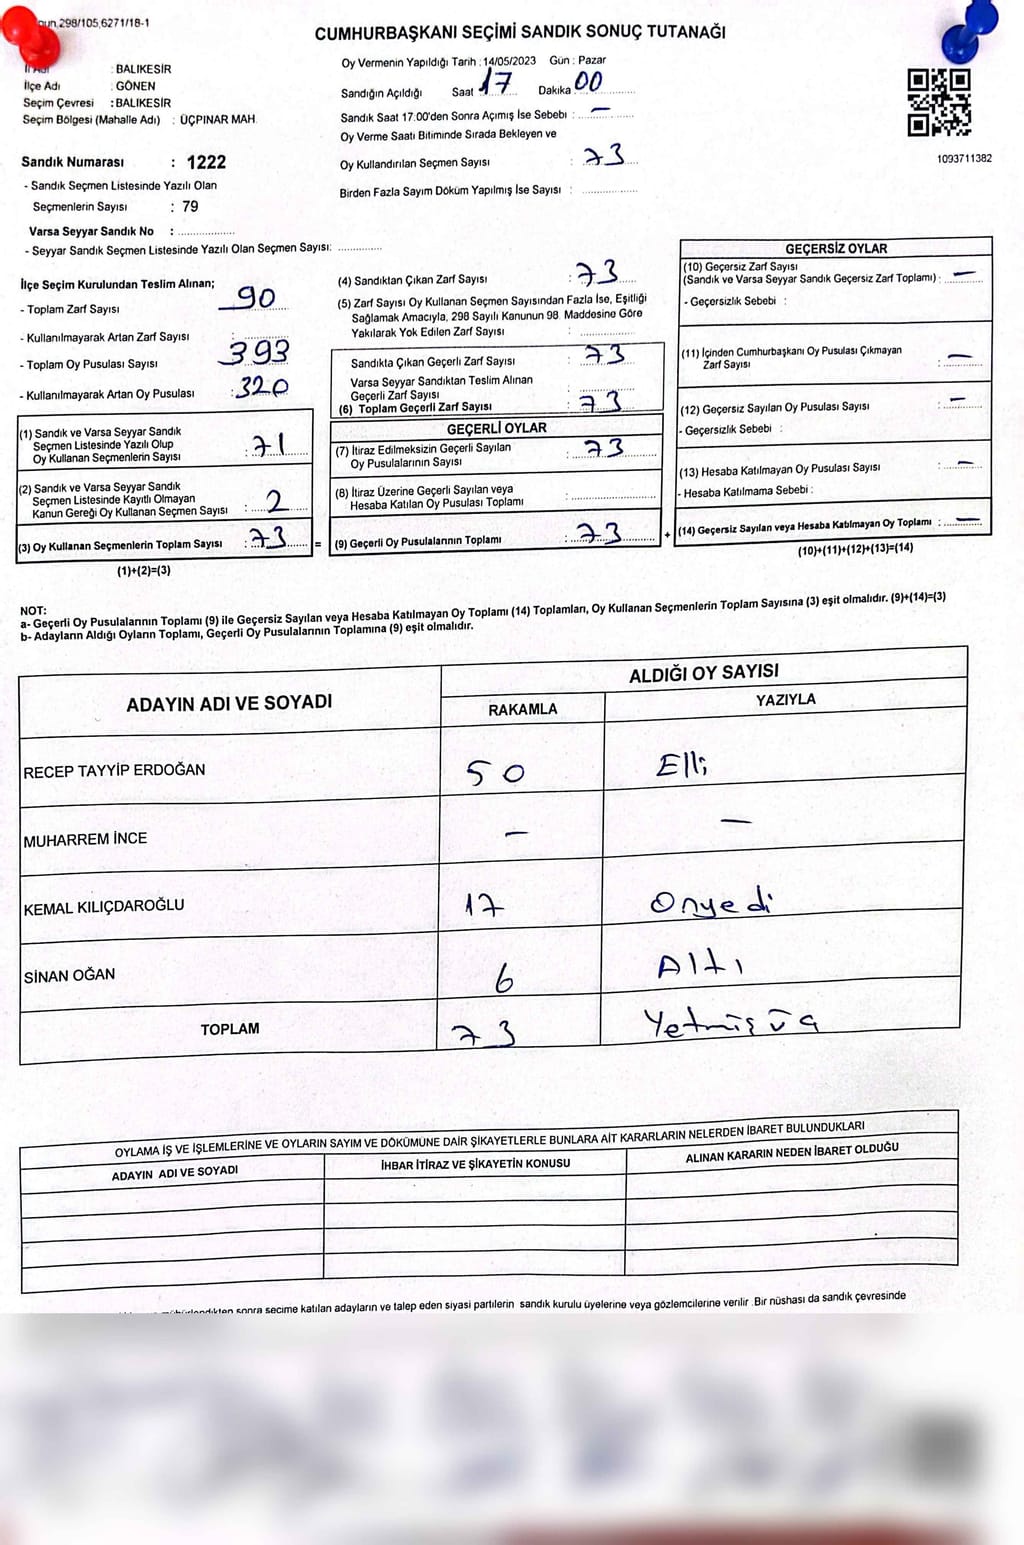 298/105,6271/18-1
CUMHURBAŞKANI SEÇİMİ SANDIK SONUÇ TUTANAĞI
: BALIKESİR
İlçe Adı : GÖNEN
Seçim Çevresi : BALIKESİR
Seçim Bölgesi (Mahalle Adı) : ÜÇPINAR MAH.
Oy Vermenin Yapıldığı Tarih : 14/05/2023 Gün : Pazar
Sandığın Açıldığı Saat 17 Dakika : 00
Sandık Saat 17:00'den Sonra Açımış İse Sebebi : —
Oy Verme Saati Bitiminde Sırada Bekleyen ve
Oy Kullandırılan Seçmen Sayısı : 73
Birden Fazla Sayım Döküm Yapılmış İse Sayısı :
1093711382
Sandık Numarası : 1222
- Sandık Seçmen Listesinde Yazılı Olan
Seçmenlerin Sayısı : 79
Varsa Seyyar Sandık No :
- Seyyar Sandık Seçmen Listesinde Yazılı Olan Seçmen Sayısı:
İlçe Seçim Kurulundan Teslim Alınan;
- Toplam Zarf Sayısı 90
- Kullanılmayarak Artan Zarf Sayısı :
- Toplam Oy Pusulası Sayısı 393
- Kullanılmayarak Artan Oy Pusulası : 320
(1) Sandık ve Varsa Seyyar Sandık
Seçmen Listesinde Yazılı Olup
Oy Kullanan Seçmenlerin Sayısı : 71
(2) Sandık ve Varsa Seyyar Sandık
Seçmen Listesinde Kayıtlı Olmayan
Kanun Gereği Oy Kullanan Seçmen Sayısı : 2
(3) Oy Kullanan Seçmenlerin Toplam Sayısı : 73 =
(1)+(2)=(3)
(4) Sandıktan Çıkan Zarf Sayısı : 73
(5) Zarf Sayısı Oy Kullanan Seçmen Sayısından Fazla İse, Eşitliği
Sağlamak Amacıyla, 298 Sayılı Kanunun 98. Maddesine Göre
Yakılarak Yok Edilen Zarf Sayısı :
Sandıkta Çıkan Geçerli Zarf Sayısı : 73
Varsa Seyyar Sandıktan Teslim Alınan
Geçerli Zarf Sayısı
(6) Toplam Geçerli Zarf Sayısı : 73
GEÇERLİ OYLAR
(7) İtiraz Edilmeksizin Geçerli Sayılan
Oy Pusulalarının Sayısı : 73
(8) İtiraz Üzerine Geçerli Sayılan veya
Hesaba Katılan Oy Pusulası Toplamı :
(9) Geçerli Oy Pusulalarının Toplamı : 73 +
GEÇERSİZ OYLAR
(10) Geçersiz Zarf Sayısı
(Sandık ve Varsa Seyyar Sandık Geçersiz Zarf Toplamı) : —
- Geçersizlik Sebebi :
(11) İçinden Cumhurbaşkanı Oy Pusulası Çıkmayan
Zarf Sayısı : —
(12) Geçersiz Sayılan Oy Pusulası Sayısı : —
- Geçersizlik Sebebi :
(13) Hesaba Katılmayan Oy Pusulası Sayısı : —
- Hesaba Katılmama Sebebi :
(14) Geçersiz Sayılan veya Hesaba Katılmayan Oy Toplamı : —
(10)+(11)+(12)+(13)=(14)
NOT:
a- Geçerli Oy Pusulalarının Toplamı (9) ile Geçersiz Sayılan veya Hesaba Katılmayan Oy Toplamı (14) Toplamları, Oy Kullanan Seçmenlerin Toplam Sayısına (3) eşit olmalıdır. (9)+(14)=(3)
b- Adayların Aldığı Oyların Toplamı, Geçerli Oy Pusulalarının Toplamına (9) eşit olmalıdır.
ADAYIN ADI VE SOYADI ALDIĞI OY SAYISI
RAKAMLA YAZIYLA
RECEP TAYYİP ERDOĞAN 50 Elli
MUHARREM İNCE — —
KEMAL KILIÇDAROĞLU 17 Onyedi
SİNAN OĞAN 6 Altı
TOPLAM 73 Yetmişüç
OYLAMA İŞ VE İŞLEMLERİNE VE OYLARIN SAYIM VE DÖKÜMÜNE DAİR ŞİKAYETLERLE BUNLARA AİT KARARLARIN NELERDEN İBARET BULUNDUKLARI
ADAYIN ADI VE SOYADI İHBAR İTİRAZ VE ŞİKAYETİN KONUSU ALINAN KARARIN NEDEN İBARET OLDUĞU
sonra seçime katılan adayların ve talep eden siyasi partilerin sandık kurulu üyelerine veya gözlemcilerine verilir .Bir nüshası da sandık çevresinde